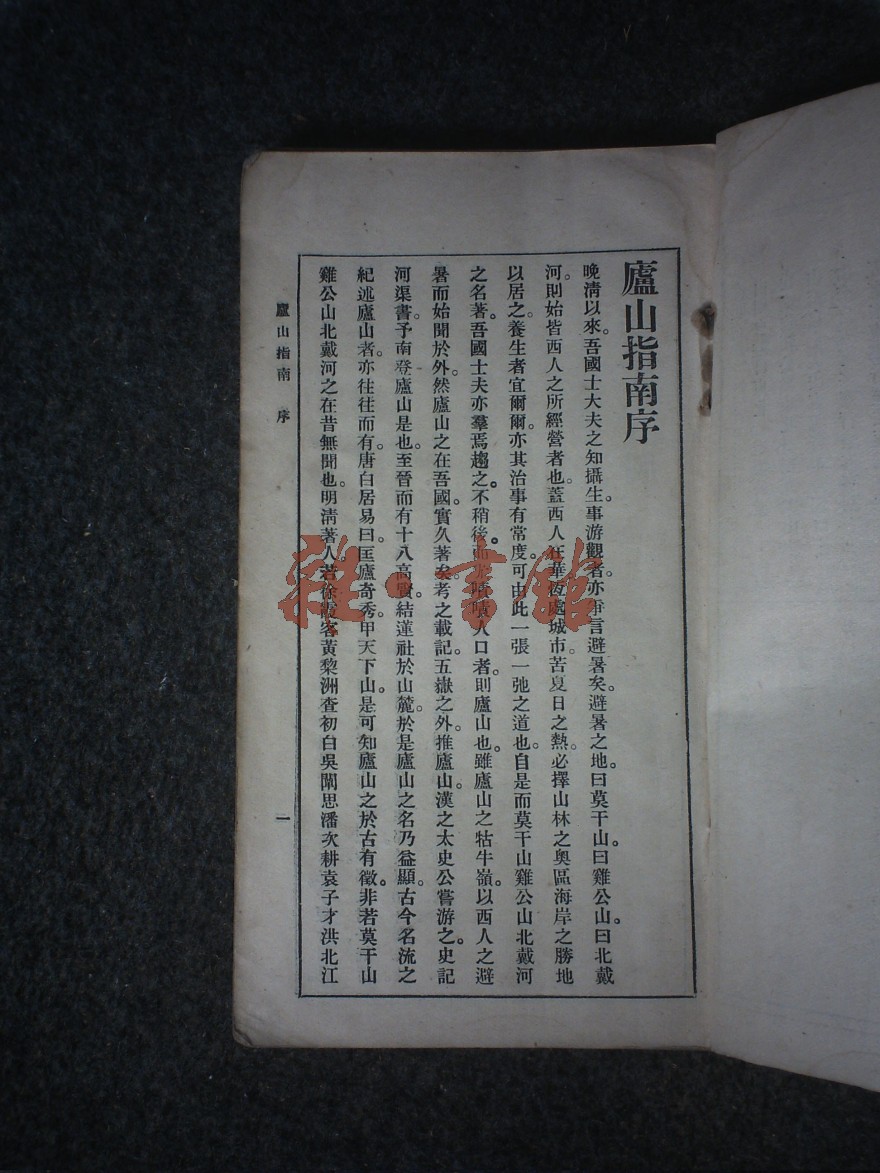 廬山指南序
晚清以來。吾國士大夫之知攝生。事游觀者。亦爭言避暑矣。避暑之地。曰莫干山。曰雞公山。曰北戴
河。則始皆西人之所經營者也。蓋西人在華。恆處城市。苦夏日之熱。必擇山林之奧區海岸之勝地
以居之。養生者宜爾爾。亦其治事有常度。可由此一張一弛之道也。自是而莫干山雞公山北戴河
之名著。吾國士夫亦羣焉趨之。不稍後。而嘖嘖人口者。則廬山也。雖廬山之牯牛嶺。以西人之避
暑而始聞於外。然廬山之在吾國。實久著矣。考之載記。五嶽之外。推廬山。漢之太史公嘗游之。史記
河渠書。予南登廬山是也。至晉而有十八高賢。結蓮社於山麓。於是廬山之名乃益顯。古今名流之
紀述廬山者。亦往往而有。唐白居易曰。匡廬奇秀。甲天下山。是可知廬山之於古有徵。非若莫干山
雞公山北戴河之在昔無聞也。明清著人。若徐霞客黃黎洲查初白吳闡思潘次耕袁子才洪北江
廬山指南 序
一
雜·書館